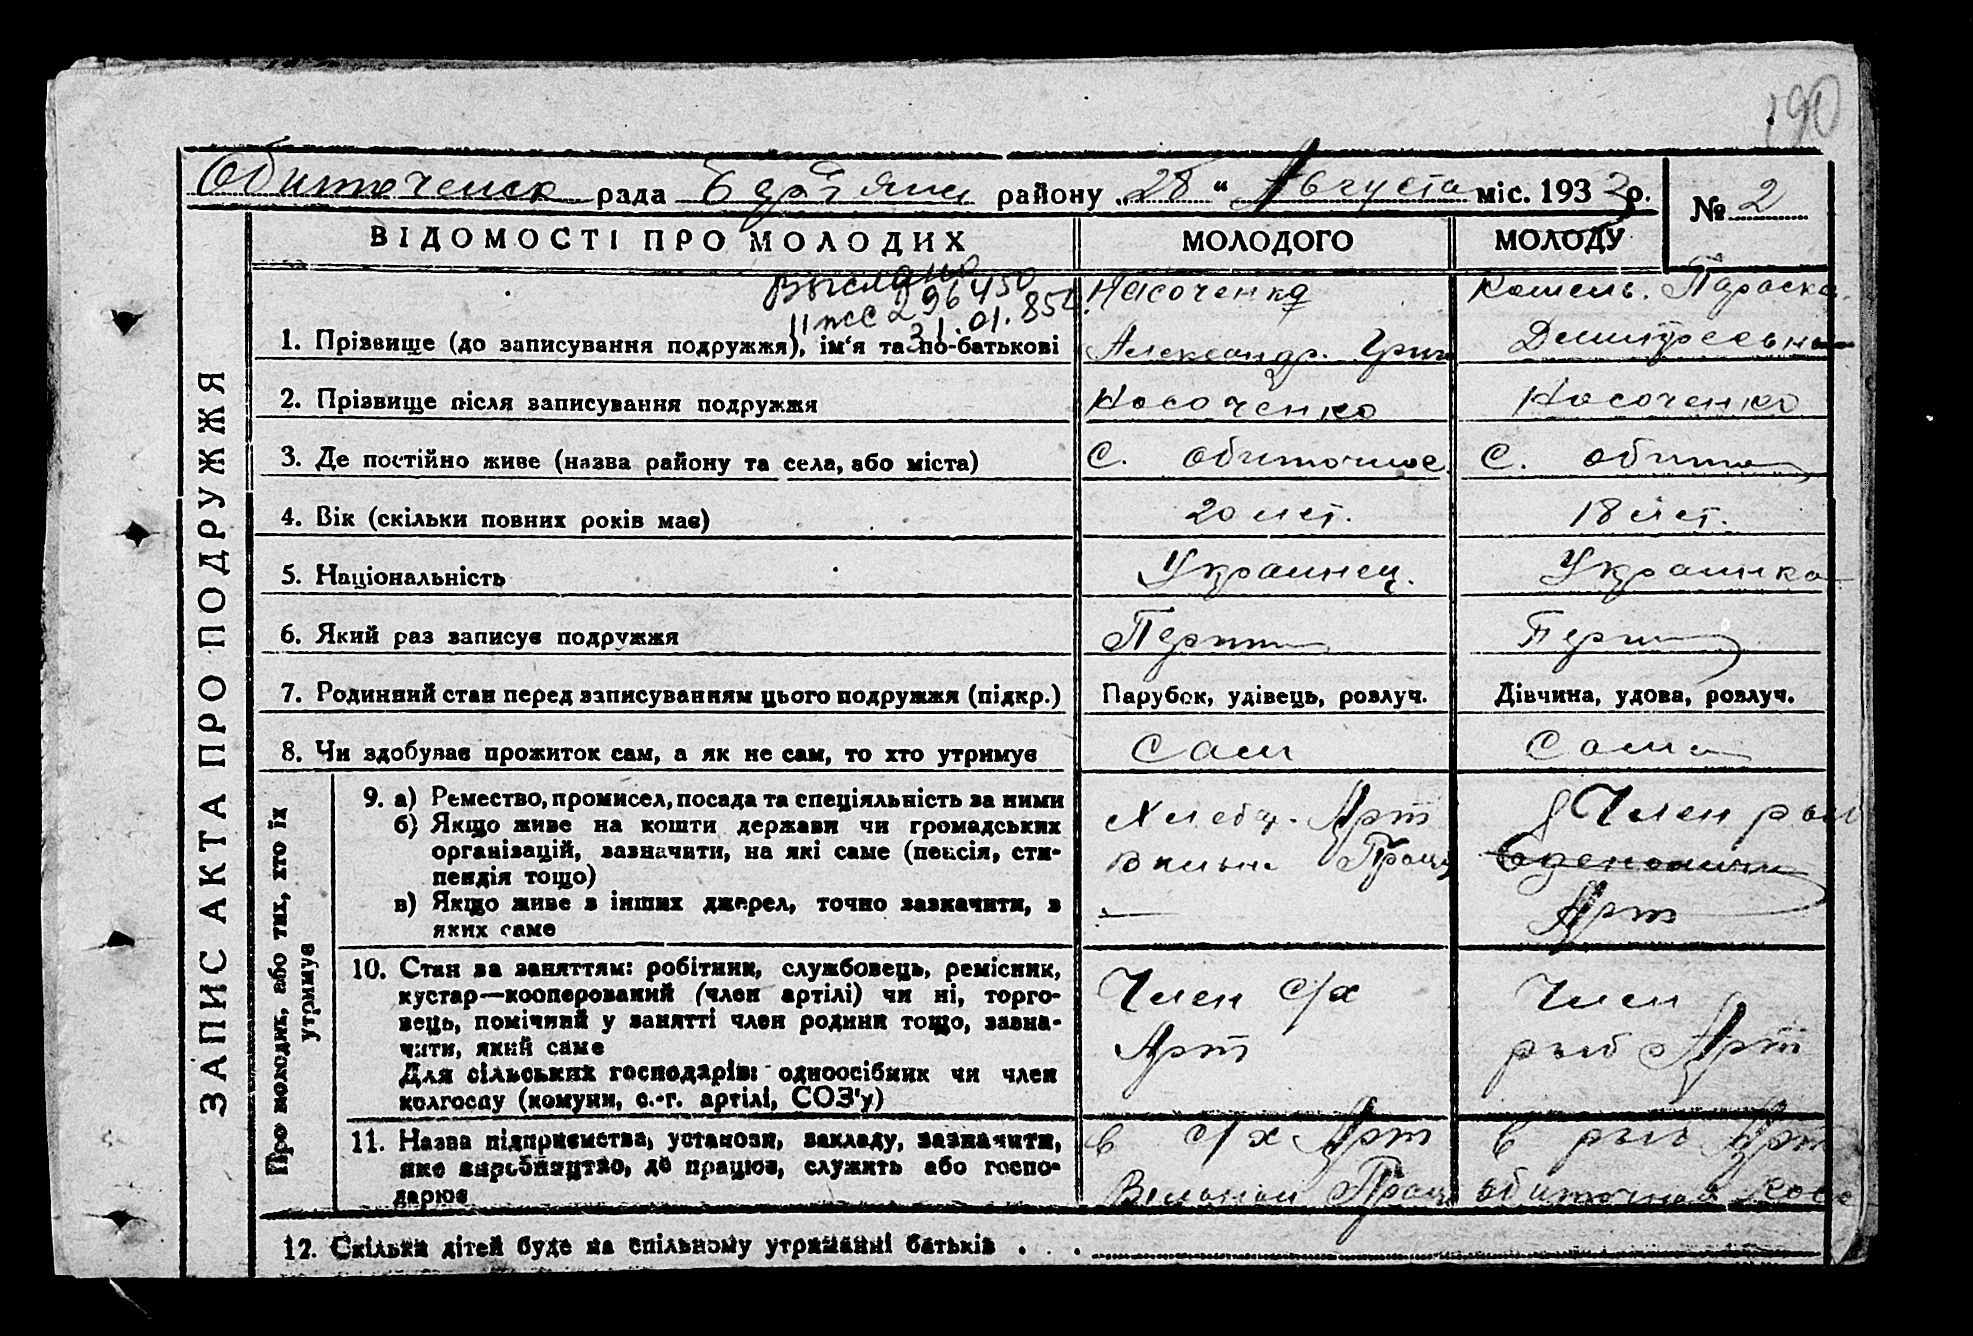 190
Обиточенск рада Бердянск району „28“ Августа міс. 1933 р.
№ 2
ВІДОМОСТІ ПРО МОЛОДИХ
МОЛОДОГО
МОЛОДУ
Выслано
296450
31.01.85
1. Прізвище (до записування подружжя), ім‘я та по-батькові
Носоченко
Александр. Григ
Кошель. Параска
Димитреевна
2. Прізвище після записування подружжя
Носоченко
Носоченко
3. Де постійно живе (назва району та села, або міста)
С. Обиточное
С. Обиточ
4. Вік (скільки повних років має)
20 лет.
18 лет.
5. Національність
Украинец.
Украинка
6. Який раз записує подружжя
Перший
Перший
7. Родинний стан перед записуванням цього подружжя (підкр.)
Парубок, удівець, розлуч.
Дівчина, удова, розлуч.
8. Чи здобуває прожиток сам, а як не сам, то хто утримує
Сам
Сама
ЗАПИС АКТА ПРО ПОДРУЖЖЯ
Про молодих, або тих, хто їх
утримує
9. а) Ремество, промисел, посада та спеціяльність за ними
б) Якщо живе на кошти держави чи громадських
організацій, зазначити, на які саме (пенсія, сти-
пендія тощо)
в) Якщо живе з інших джерел, точно зазначити, з
яких саме
Хлебор. Арт
Вильна Праця
Член рыб
Арт
10. Стан за заняттям: робітник, службовець, ремісник,
кустар—кооперований (член артілі) чи ні, торго-
вець, помічний у занятті член родини тощо, зазна-
чити, який саме
Для сільських господарів: одноосібник чи член
колгоспу (комуни, с.-г. артілі, СОЗ'у)
Член с/х
Арт
Член
рыб Арт
11. Назва підприємства, установи, закладу, зазначити,
яке виробництво, де працює, служить або госпо-
дарює
в с/х Арт
Вильная Праця
в рыб Арт
Обиточная коса
12. Скільки дітей буде на спільному утриманні батьків . . .